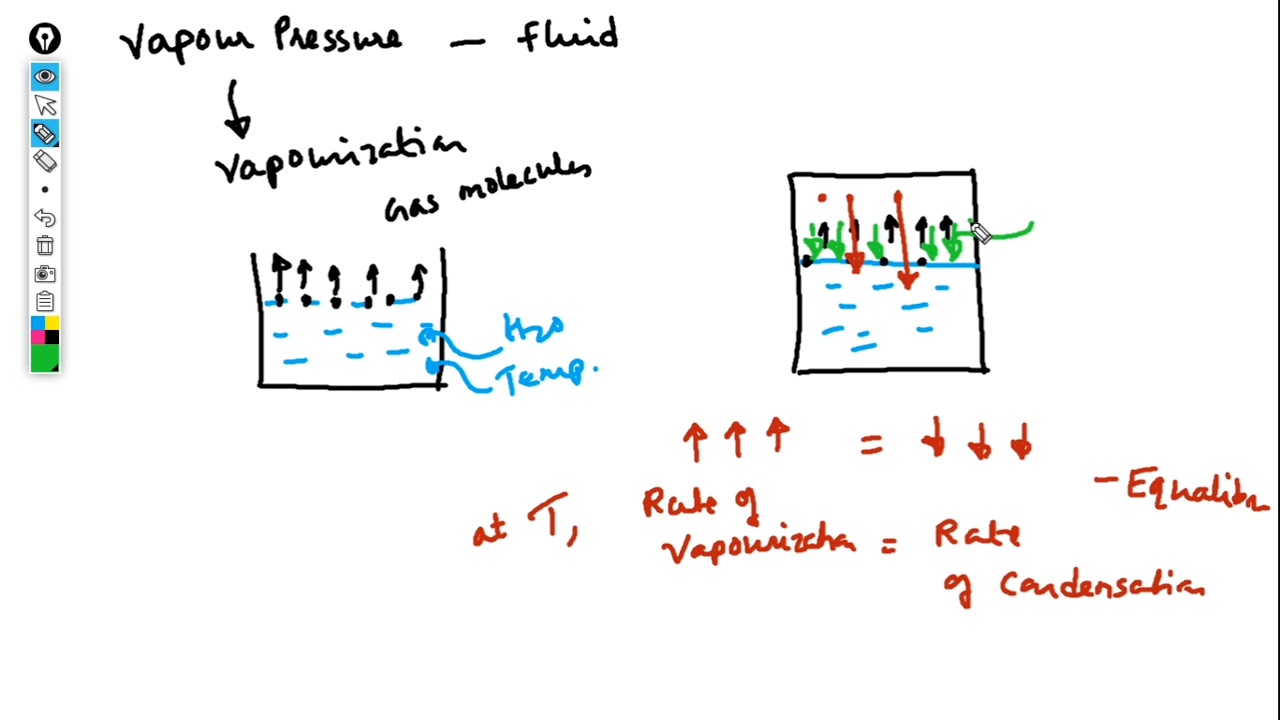 Vapour Pressure — fluid
Vapourization
Gas molecules
H2O
Temp.
↑ ↑ ↑ = ↓ ↓ ↓
at T, Rate of Vapourization = Rate of Condensation